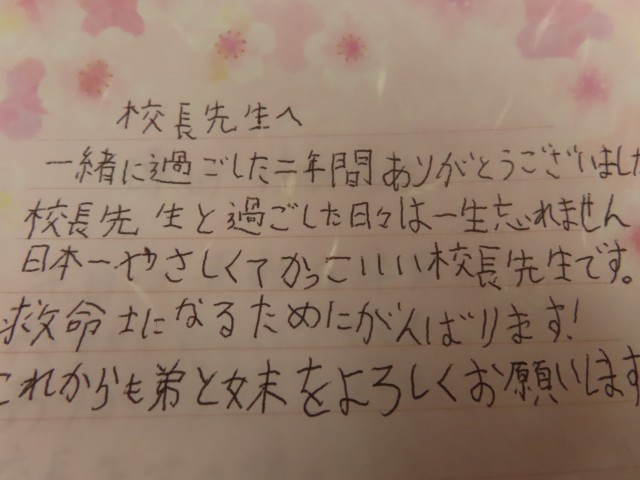 校長先生へ
一緒に過ごした二年間ありがとうございました
校長先生と過ごした日々は一生忘れません
日本一やさしくてかっこいいい校長先生です。
救命士になるためにがんばります!
これからも弟と妹をよろしくお願いします